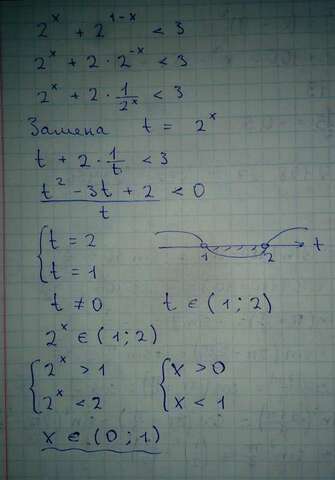 2^x + 2^(1-x) < 3
2^x + 2 · 2^(-x) < 3
2^x + 2 · 1/2^x < 3
Замена t = 2^x
t + 2 · 1/t < 3
(t² - 3t + 2)/t < 0
{ t = 2
t = 1
1 2 t
t ≠ 0 t ∈ (1; 2)
2^x ∈ (1; 2)
{ 2^x > 1 { x > 0
2^x < 2 x < 1
x ∈ (0; 1)